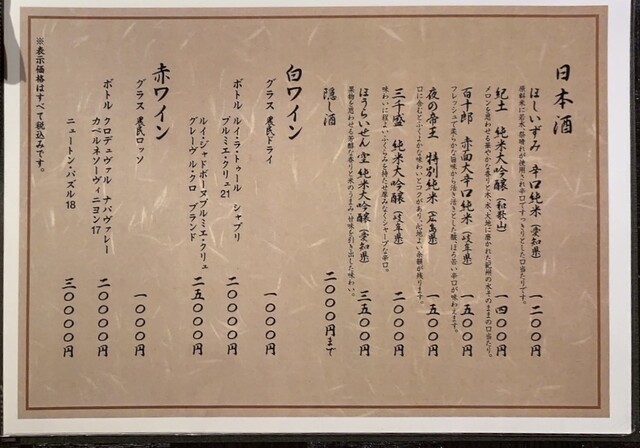 日本酒
ほしいずみ 辛口純米(愛知県) 一二〇〇円
原料米に若水、祭晴れが使用され辛口ですっきりとした口当たりです。
紀土 純米大吟醸(和歌山) 一四〇〇円
メロンを思わせる華やかな香りと水、大地に磨かれた紀州の水そのままの口当たり。
百十郎 赤面大辛口純米(岐阜県) 一五〇〇円
フレッシュで柔らかな旨味から活き活きとした酸、ほろ苦い辛口が味わえます。
夜の帝王 特別純米(広島県) 一五〇〇円
口に含むとふくよかな味わいとコクがあり、心地よい余韻が残ります。
三千盛 純米大吟醸(岐阜県) 二〇〇〇円
味わいに程よいふくらみを持たせ厚みなくシャープな辛口。
ほうらいせん 空 純米大吟醸(愛知県) 三五〇〇円
果物を思わせる芳醇な香りと米のうまみ、甘味を引き出した味わい。
隠し酒 二〇〇〇円まで
白ワイン
グラス 農民ドライ 一〇〇〇円
ボトル ルイ・ラ・トゥール シャブリ
プルミエ・クリュ21 二〇〇〇〇円
ルイ・ジャドボーヌプルミエ・クリュ
グレーヴル・クロ ブランド 二五〇〇〇円
赤ワイン
グラス 農民ロッソ 一〇〇〇円
ボトル クロデュヴァル ナパヴァレー
カベルネソーヴィニヨン17 二〇〇〇〇円
ニュートン・パズル18 三〇〇〇〇円
※表示価格はすべて税込みです。